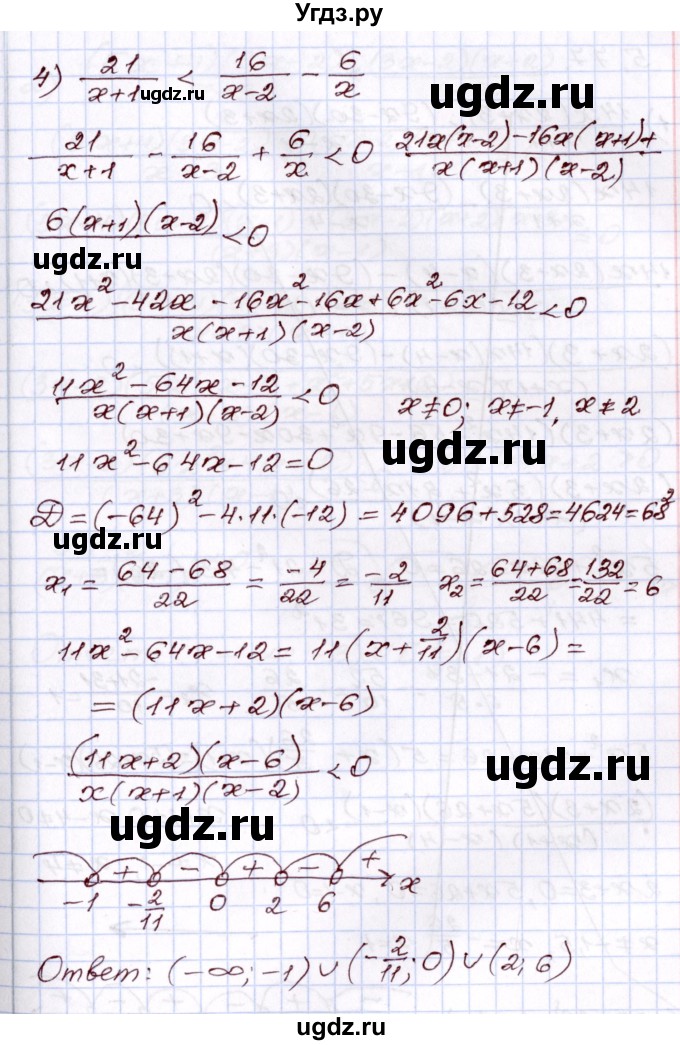 Угдз.ру
4) 21/(x+1) < 16/(x-2) - 6/x
ugdz.ru
ugdz.ru
21/(x+1) - 16/(x-2) + 6/x < 0   (21x(x-2)-16x(x+1)+)/(x(x+1)(x-2))
(6(x+1)(x-2))/ < 0
ugdz.ru
ugdz.ru
(21x² - 42x - 16x² - 16x + 6x² - 6x - 12)/(x(x+1)(x-2)) < 0
(11x² - 64x - 12)/(x(x+1)(x-2)) < 0   x≠0; x≠-1, x≠2
ugdz.ru
11x² - 64x - 12 = 0
D = (-64)² - 4·11·(-12) = 4096 + 528 = 4624 = 68²
ugdz.ru
x₁ = (64-68)/22 = -4/22 = -2/11   x₂ = (64+68)/22 = 132/22 = 6
11x² - 64x - 12 = 11(x + 2/11)(x-6) =
ugdz.ru
= (11x+2)(x-6)
((11x+2)(x-6))/(x(x+1)(x-2)) < 0
ugdz.ru
ugdz.ru
+ - + - + x
-1 -2/11 0 2 6
Ответ: (-∞; -1) ∪ (-2/11; 0) ∪ (2; 6)
ugdz.ru
ugdz.ru